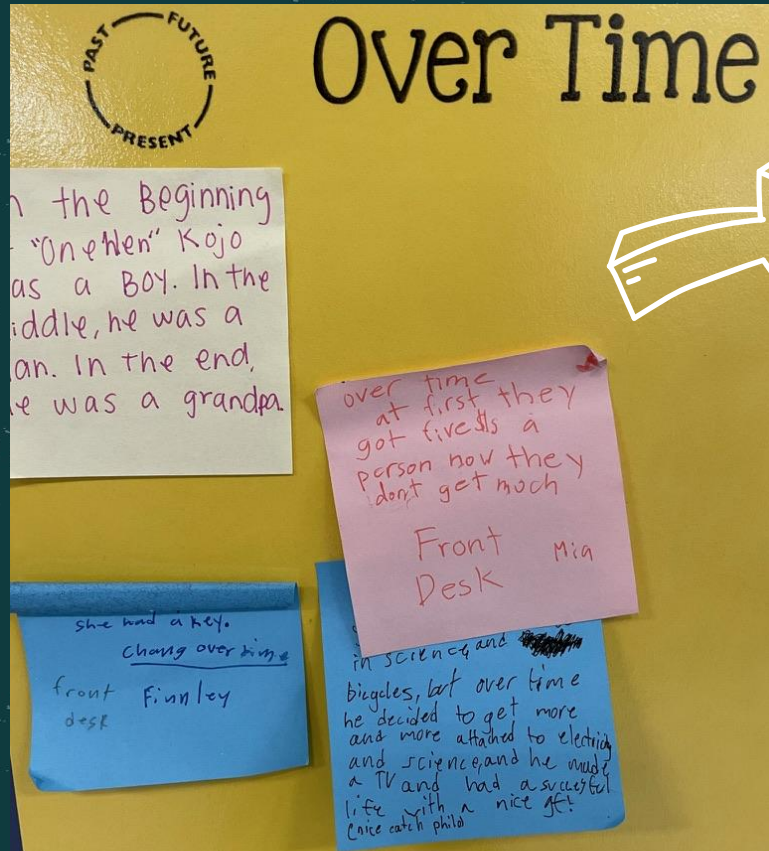 PAST FUTURE PRESENT
Over Time
n the Beginning
"One Hen" Kojo
as a Boy. In the
iddle, he was a
an. In the end,
e was a grandpa.
over time
at first they
got five $ls a
person now they
don't get much
Front
Desk
Mia
she had a key.
chang over time
front
desk
Finnley
in science, and
bicycles, but over time
he decided to get more
and more attached to electricity
and science, and he made
a TV and had a succesful
life with a nice gf!
(nice catch philo)